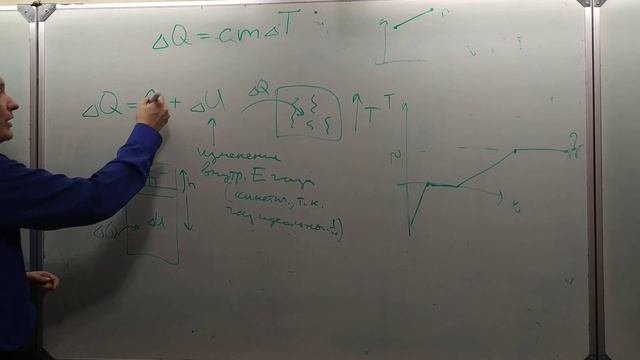 ΔQ = cmΔT
ΔQ = + ΔU
ΔQ
T
T
изменение
внутр. E газа
(кинетич., т.к.
газ идеальный!)
h
ΔQ
dU
t